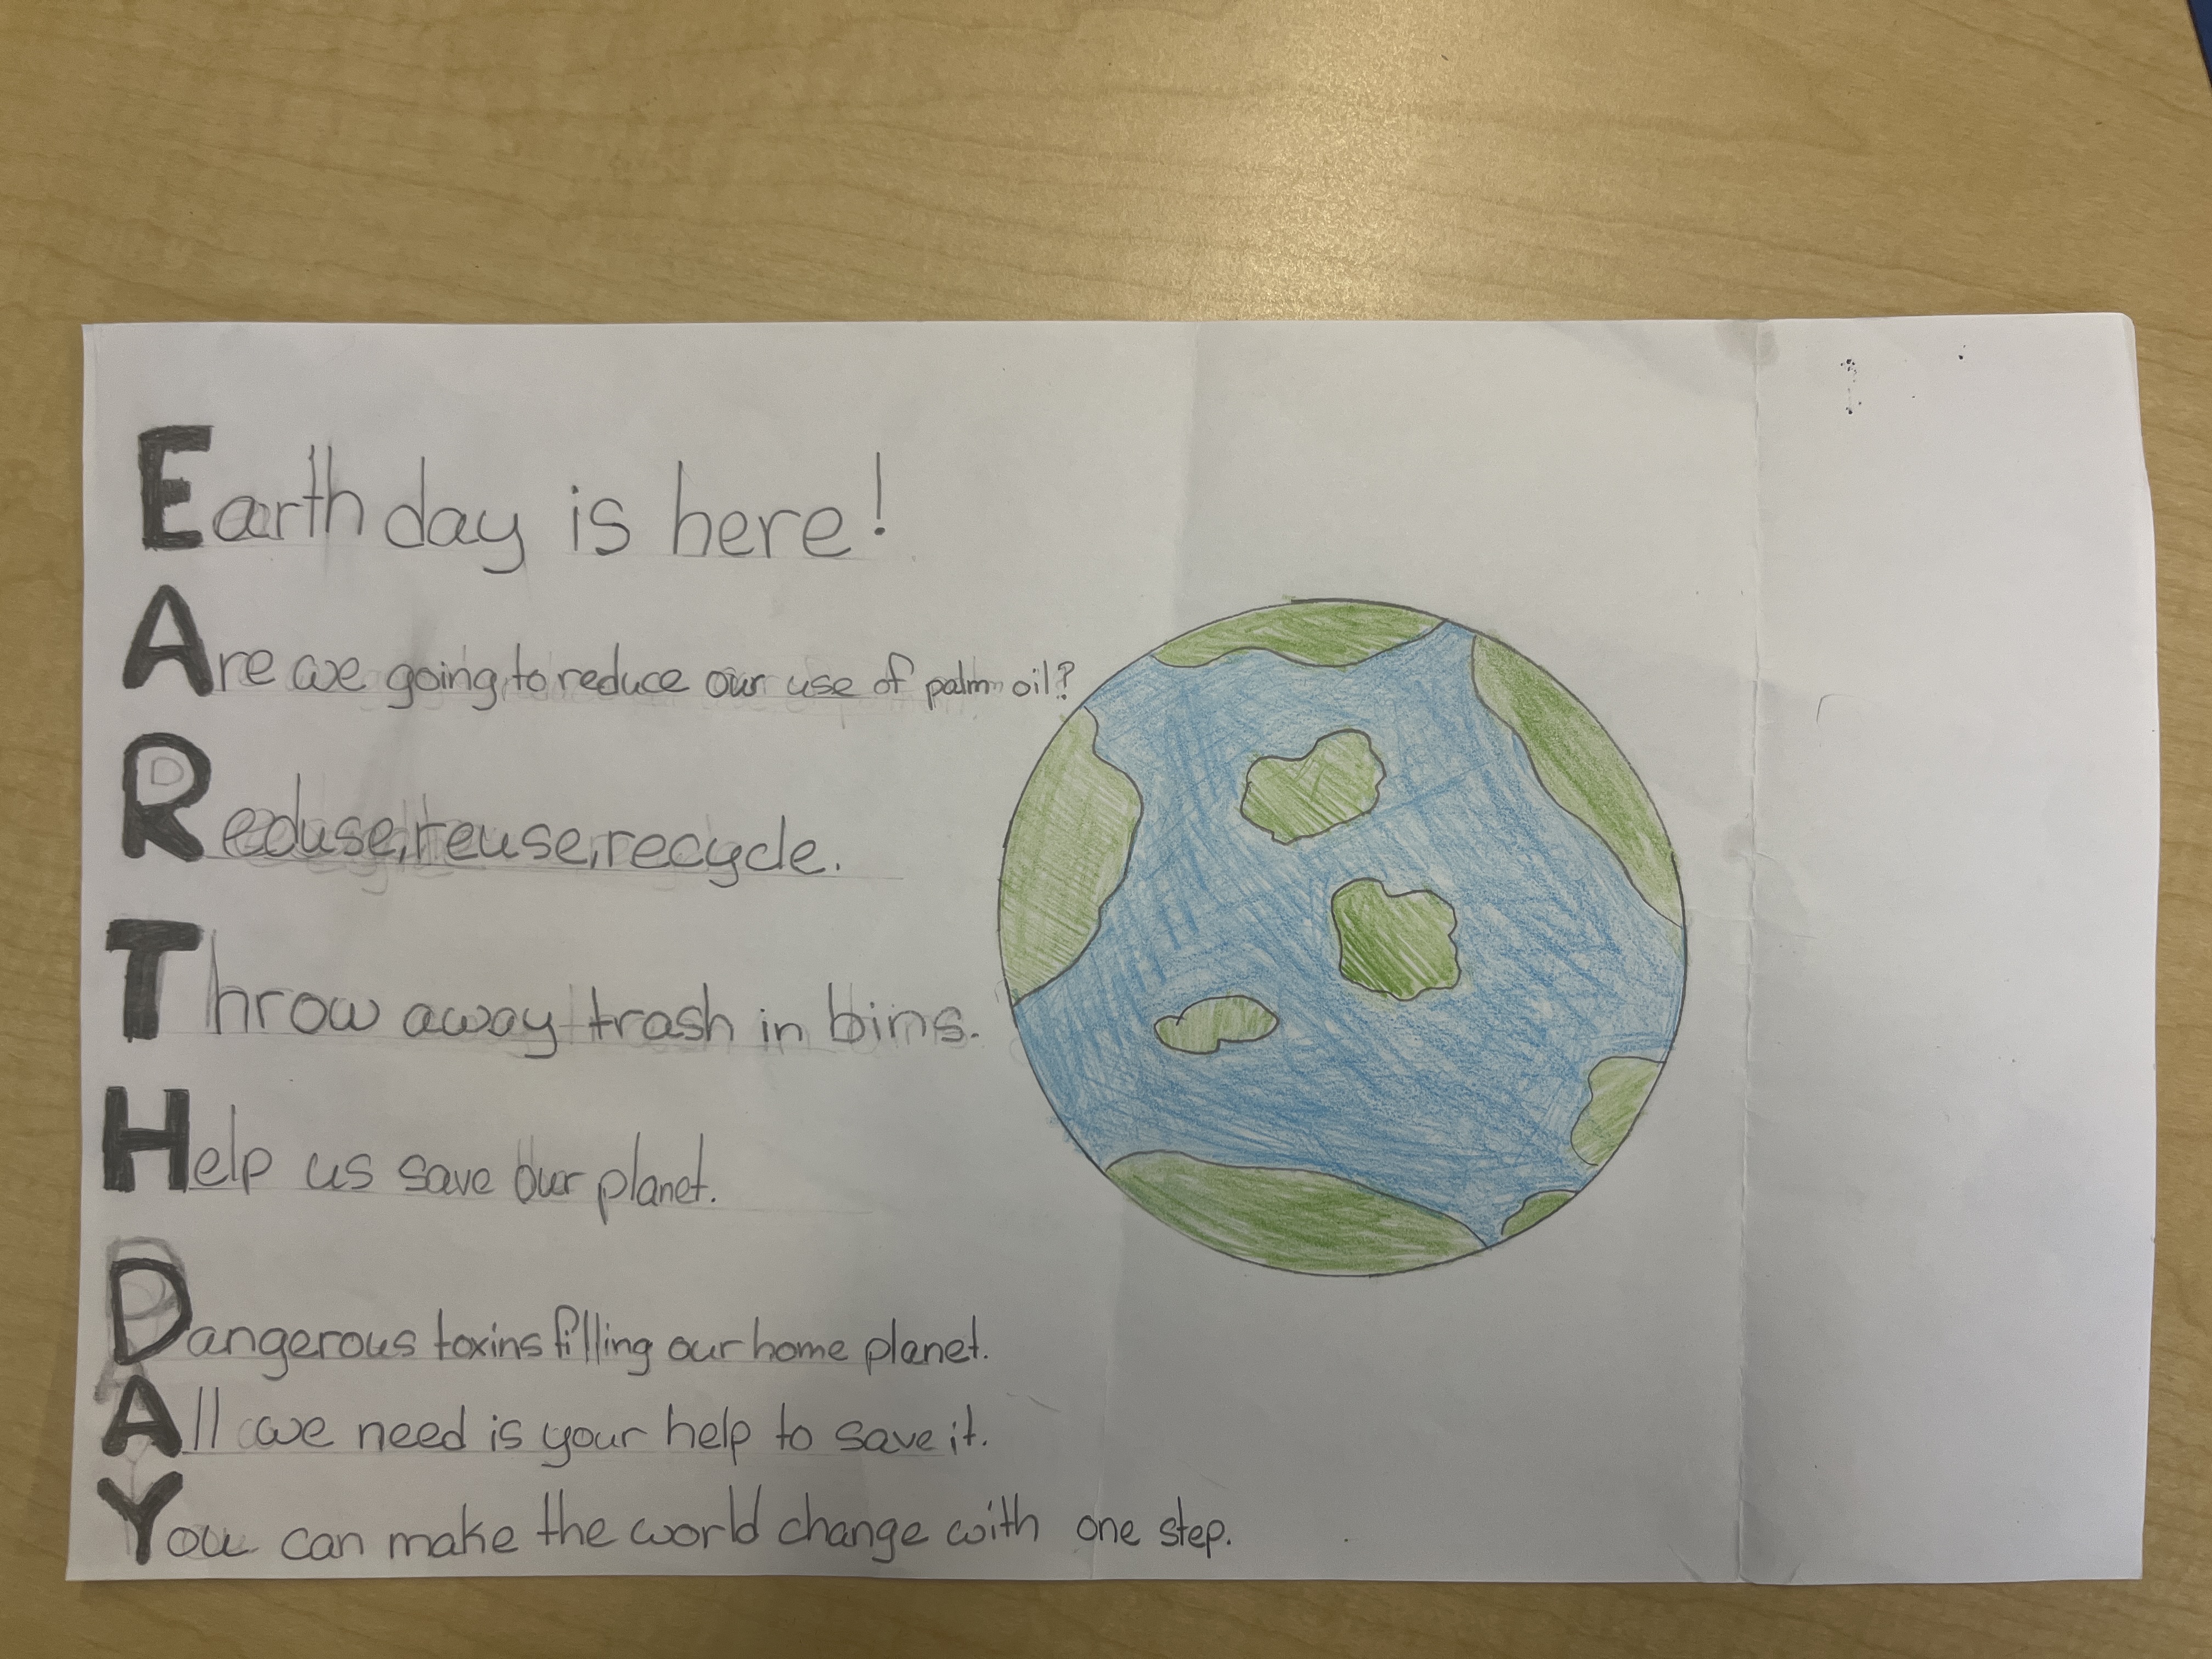 Earth day is here!
Are we going to reduce our use of palm oil?
Reduse, reuse, recycle.
Throw away trash in bins.
Help us save our planet.
Dangerous toxins filling our home planet.
All we need is your help to save it.
You can make the world change with one step.